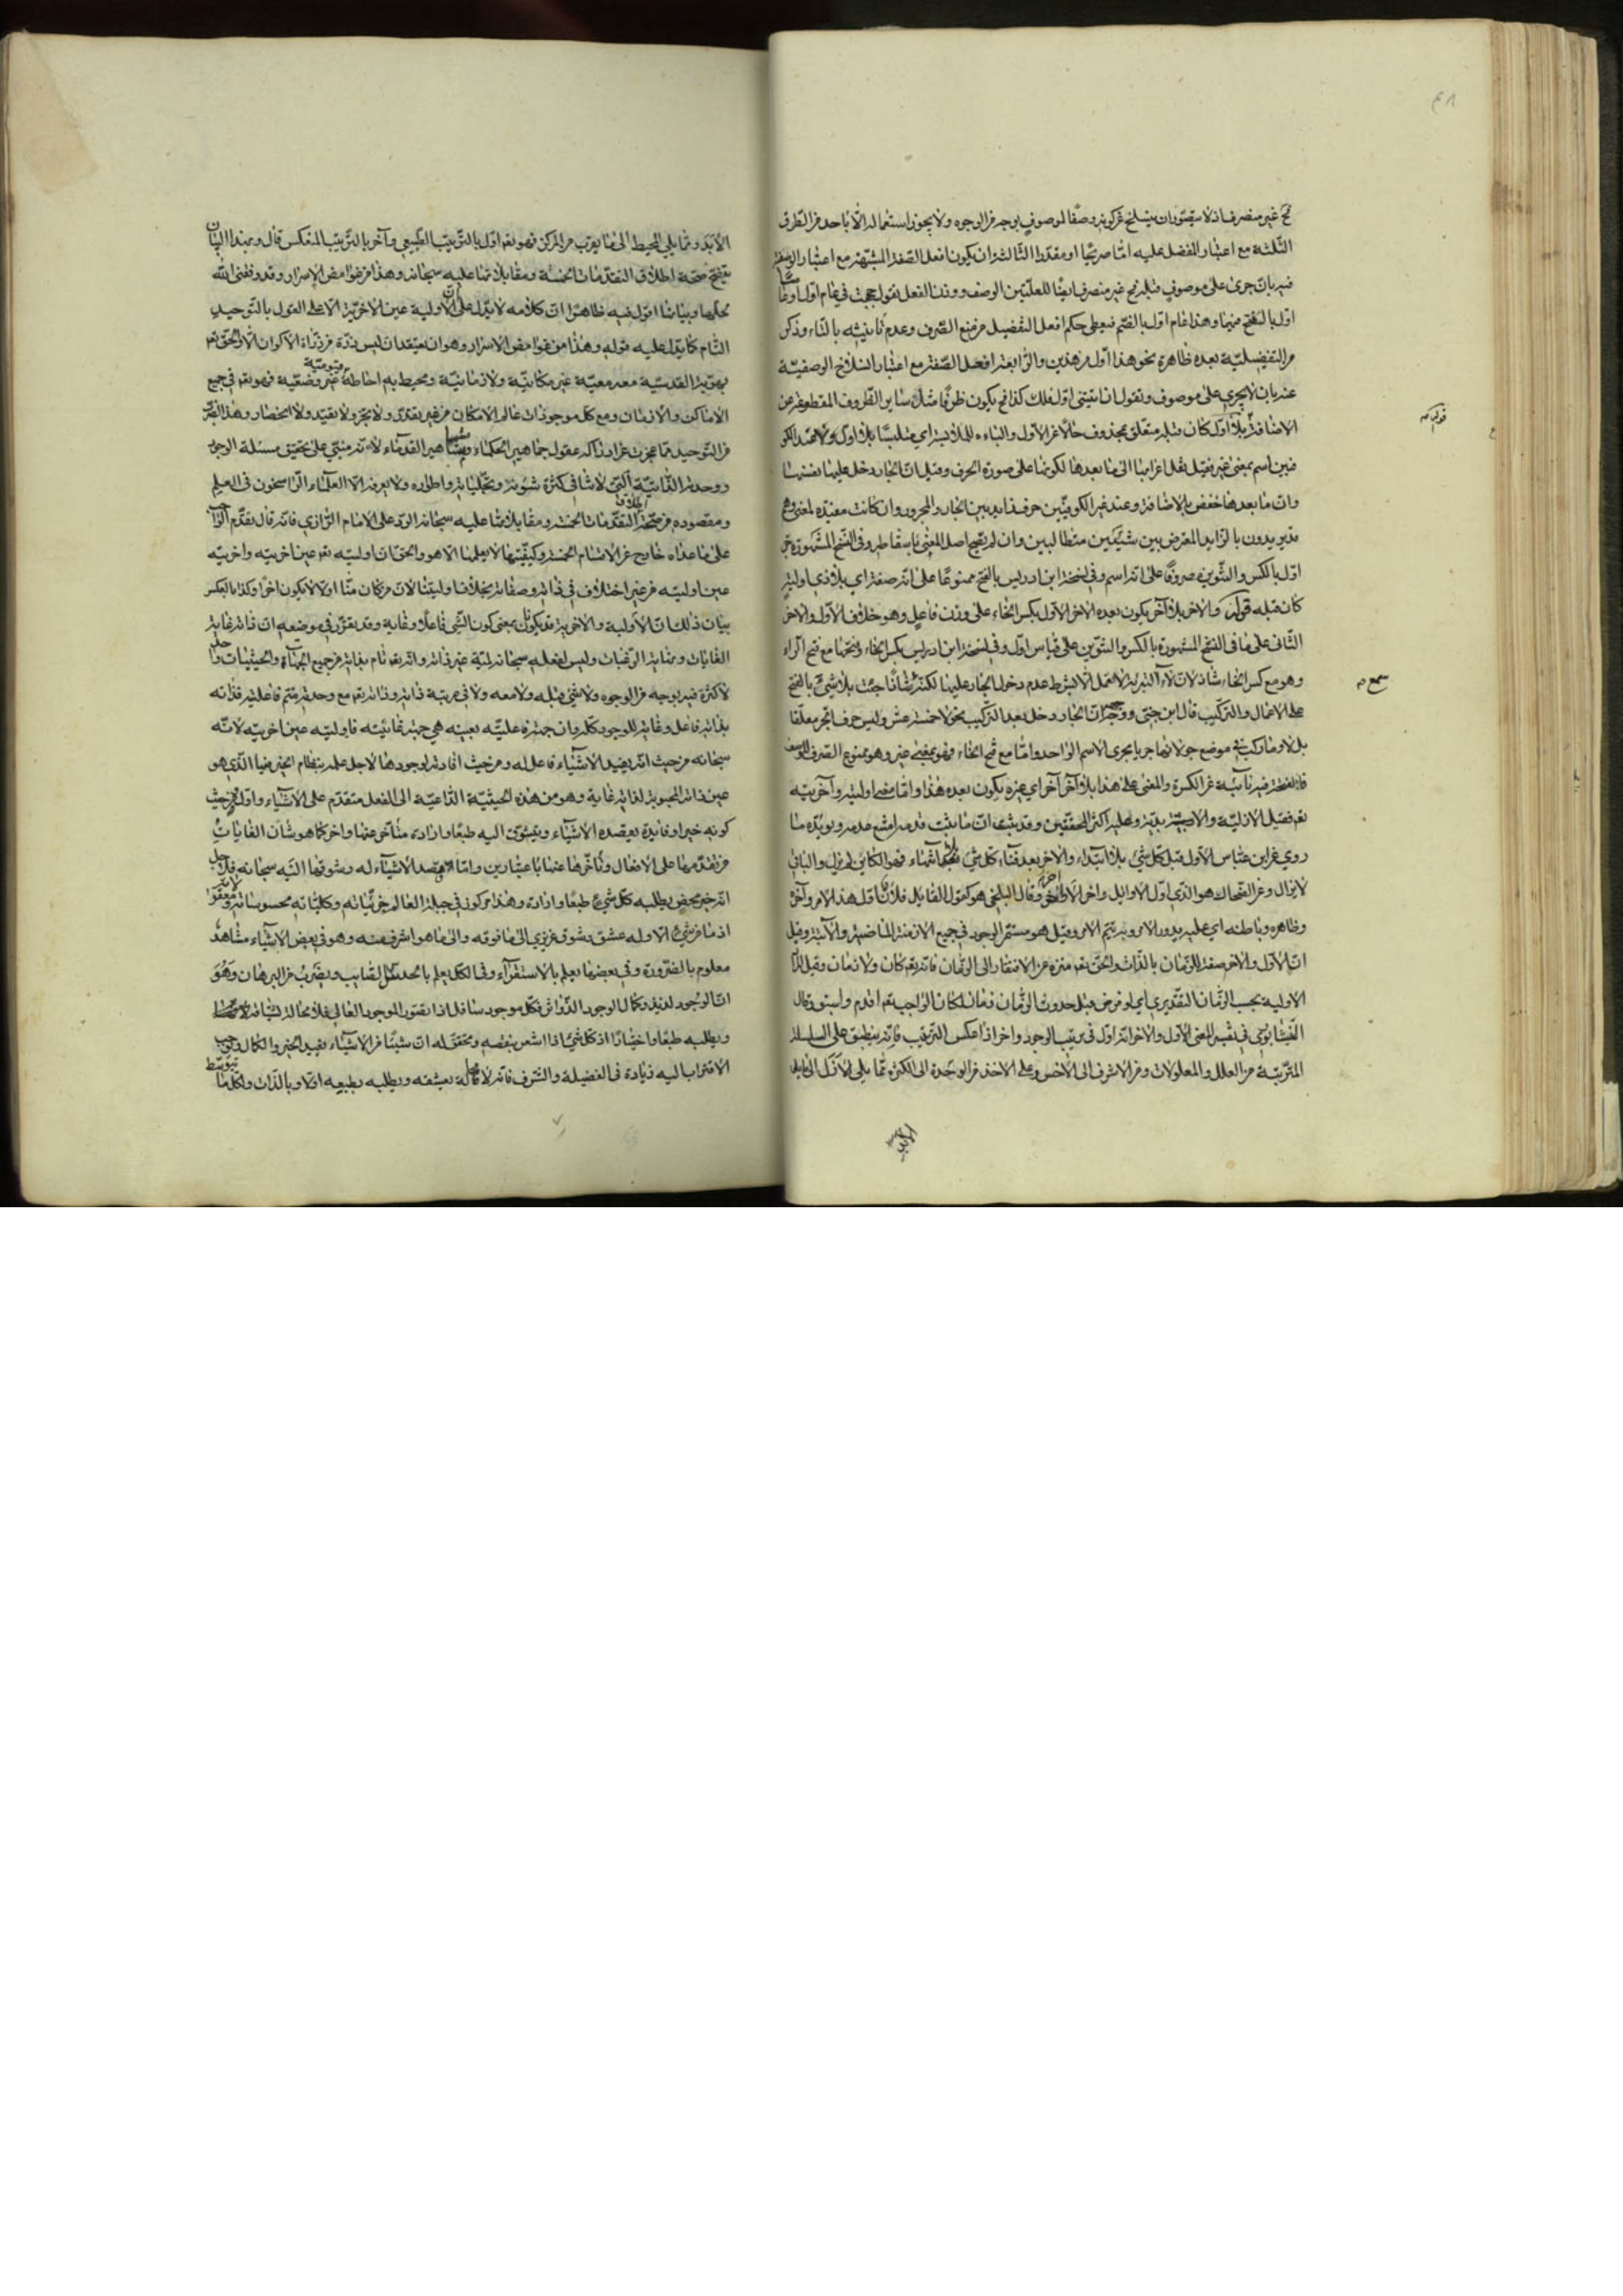 ٤٨
غير منصرف اذ لا يتصور ان ينسلخ عن كونه وصفا لموصوف بوجه من الوجوه ولا يجوز استعماله الا باحد من الطرق
الثلثة مع اعتبار المفضل عليه اما صريحا او مقدرا الثالث ان يكون افعل الصفة المشبهة مع اعتبار الوصفية
فيه بان جرى على موصوف قبله غير منصرف ايضا للعلتين الوصف ووزن الفعل تقول حججت في عام اول او عاما
اول بالفتح فيهما وهذا عام اول بالضم فيعطى حكم افعل التفضيل من منع الصرف وعدم تأنيثه بالتاء وذكر
من التفضيلية بعده ظاهرة نحو هذا اول من هذين والرابع افعل الصفة مع اعتبار انسلاخ الوصفية
عنه بان لا يجري على موصوف وتقول ان اتيتني اول فلك كذا فح يكون ظرفا مثل ساير الظروف المقطوعة عن
الاضافة بلا اول كان قبله متعلق بمحذوف حالا عن الاول والباء للملابسة اي متلبسا بلا اول ولا عند الكو
فيين اسم بمعنى غير فيقل نقل اعرابها الى ما بعدها لكونها على صورة الحرف وقيل ان الجار دخل عليها نفسها
وان ما بعدها خفض بالاضافة وعند غير الكوفيين حرف زايد بين الجار والمجرور وان كانت مفيدة لمعنى وهم
قد يريدون بالزايد المعترض بين شيئين متطالبين وان لم يصح اصل المعنى باسقاطه وفي النسخ المشهورة جر
اول بالكسر والتنوين مصروفا على انه اسم وفي نسخة ابن ادريس بالفتح ممنوعا على انه صفة اي بلا ذي اولية
كان قبله قوله والاخر بلا آخر يكون بعده الاخر الاول بكسر الخاء على وزن فاعل وهو خلاف الاول والاخر
الثاني على ما في النسخ المشهورة بالكسر والتنوين على قياس اول وفي نسخة ابن ادريس بكسر الخاء وفتحها مع فتح الراء
وهو مع كسر الخاء شاذ لان لاء التبرئة لا تعمل الا بشرط عدم دخول الجار عليها لكنه شذ جئت بلا شيء بالفتح
على الاعمال والتركيب قال ابن جني ووجهه ان الجار دخل بعد التركيب نحو لا خمسة عشر وليس حرف الجر معلقا
بل لا وما ركب في موضع جر لانهما جريا مجرى الاسم الواحد واما مع فتح الخاء فهو بمعنى غير وهو ممنوع الصرف للوصف
فالفتحة فيه نائبة عن الكسرة والمعنى على هذا بلا آخر آخر اي غيره يكون بعده هذا واما معنى اوليته وآخريته
تع فقيل الازلية والابدية وعليه اكثر المحققين وقد ثبت ان ما يثبت قدمه امتنع عدمه ويؤيده ما
روي عن ابن عباس الاول قبل كل شيء بلا ابتداء والاخر بعد فناء كل شيء بلا انتهاء فهو الكاين لم يزل والباقي
لا يزال وعن الضحاك هو الذي اول الاوايل واخر الاواخر وقال البلخي هو كقول القايل فلان اول هذا الامر وآخره
وظاهره وباطنه اي عليه يدور الامر وبه يتم الامر وقيل هو مستمر الوجود في جميع الازمنة الماضية والآتية وقيل
ان الاول والاخر صفة الزمان بالذات والحق تع منزه عن الافتقار الى الزمان فانه تع كان ولا زمان وقيل
الاولية بحسب الزمان التقديري اي لو فرض قبل حدوث الزمان زمان لكان الواجب تع اقدم واسبق وقال
النيشابوري في تفسير المعنى الاول والاخر انه اول في ترتيب الوجود واخر اذا عكس الترتيب فانه ينطبق على السلسلة
المترتبة من العلل والمعلولات ومن الاشرف الى الاخس وعلى الاخذ من الوحدة الى الكثرة مما يلي الازل الى ما يلي
الابد
الابد ومما يلي المحيط الى ما يقرب من المركز فهو تع اول بالترتيب الطبيعي وآخر بالترتيب المنعكس قال وبهذا البيان
يتضح صحة اطلاق التقدمات الخمسة ومقابلاتها عليه سبحانه وهذا من غوامض الاسرار وقد وفقني الله
لحلها وبيانها اقول فيه ظاهرا ان كلامه لا يدل على ان الاولية عين الاخرية الا على القول بالتوحيد
التام كما يدل عليه قوله وهذا من غوامض الاسرار وهو ان يعتقد ان ليس ذرة من ذرات الاكوان الا والحق تع
بهويته القدسية معه معية غير مكانية ولا زمانية ومحيط به احاطة قيومية غير وضعية فهو تع في جميع
الاماكن والازمان ومع كل موجودات عالم الامكان من غير تقدر ولا تجز ولا تقيد ولا انحصار وهذا
من التوحيد مما عجزت عن ادراكه عقول جماهير الحكماء ومشاهير القدماء لانه مبتني على تحقيق مسئلة الوجود
ووحدته الذاتية التي لا تنافي كثرة شئونه وتجلياته واطواره ولا يعرفه الا العلماء الراسخون في العلم
ومقصوده من صحة اطلاق التقدمات الخمسة ومقابلاتها عليه سبحانه الرد على الامام الرازي فانه قال تقدم الواجب
على ما عداه خارج عن الاقسام الخمسة وكيفيتها لا يعلمها الا هو والحق ان اوليته تع عين اخريته واخريته
عين اوليته من غير اختلاف في ذاته وصفاته بخلاف اوليتنا لان من كان منا اولا لا يكون اخرا وكذا بالعكس
بيان ذلك ان الاولية والاخرية قد يكون بمعنى كون الشيء فاعلا وغاية وقد تقرر في موضعه ان ذاته غاية
الغايات ونهاية الرغبات وليس لفعله سبحانه لمية غير ذاته وانه تع تام بذاته من جميع الجهات والحيثيات
لا كثرة فيه بوجه من الوجوه ولا شيء قبله ولا معه ولا في مرتبة ذاته وذاته تع مع وحدته متمم فاعليته فذاته
بذاته فاعل وغاية للوجود كله وان جهة فاعليته بعينه هي جهة غائيته فاوليته عين اخريته لانه
سبحانه من حيث انه يفيد الاشياء فاعل له ومن حيث افادته لوجودها لاجل علمه بنظام الخير فيها الذي هو
عين ذاته المحبوبة لذاته غاية وهو من هذه الحيثية الداعية الى الفعل متقدم على الاشياء واول ومن حيث
كونه خيرا وفايدة يقصده الاشياء ويتشوق اليه طبعا وارادة متأخر عنها واخر كما هو شأن الغايات
من تقدمها على الافعال وتأخرها عنها باعتبارين واما قصد الاشياء له وشوقها اليه سبحانه فلاجل
انه خير محض يطلبه كل شيء طبعا وارادة وهذا مركوز في جبلة العالم جزئياته وكلياته محسوساته ومعقولاته
اذ ما من شيء الا وله عشق وشوق غريزي الى ما فوقه والى ما هو اشرف منه وهو في بعض الاشياء مشاهد
معلوم بالضرورة وفي بعضها يعلم بالاستقراء وفي الكل يعلم بالحدس الصايب وبضرب من البرهان وهو
ان الوجود لذيذ وكمال الوجود الذ واثر فكل موجود سافل اذا تصور الموجود العالي فلا محالة يشتاقه
ويطلبه طبعا واختيارا اذ كل شيء اذا اشعر بنقصه وتحقق له ان شيئا من الاشياء يفيد الخير والكمال ويوجب
الاقتراب اليه زيادة في الفضيلة والشرف فانه لا محالة يعشقه ويطلبه بطبعه اولا وبالذات ولكل ما يتوسط